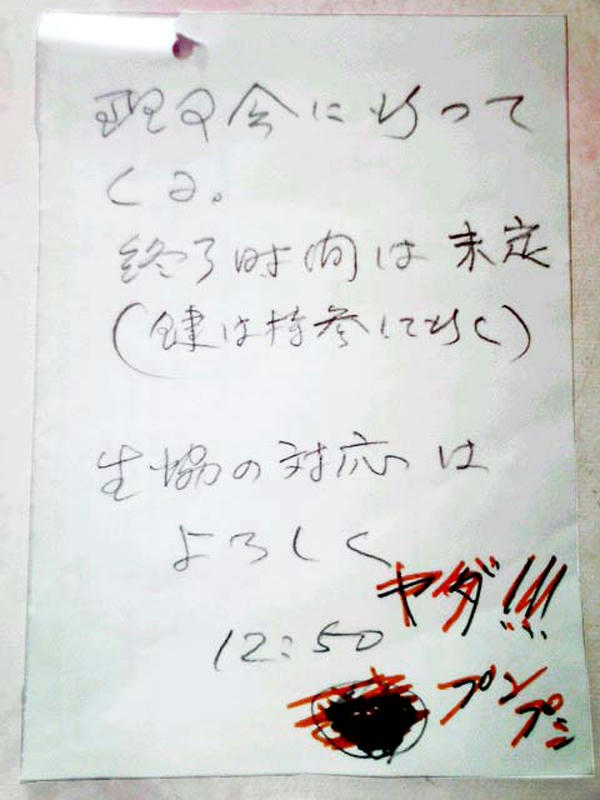 理事会に行って
くる。
終了時間は未定
(鍵は持参して行く)
生協の対応は
よろしく
ヤダ!!!
12:50
プン
プン